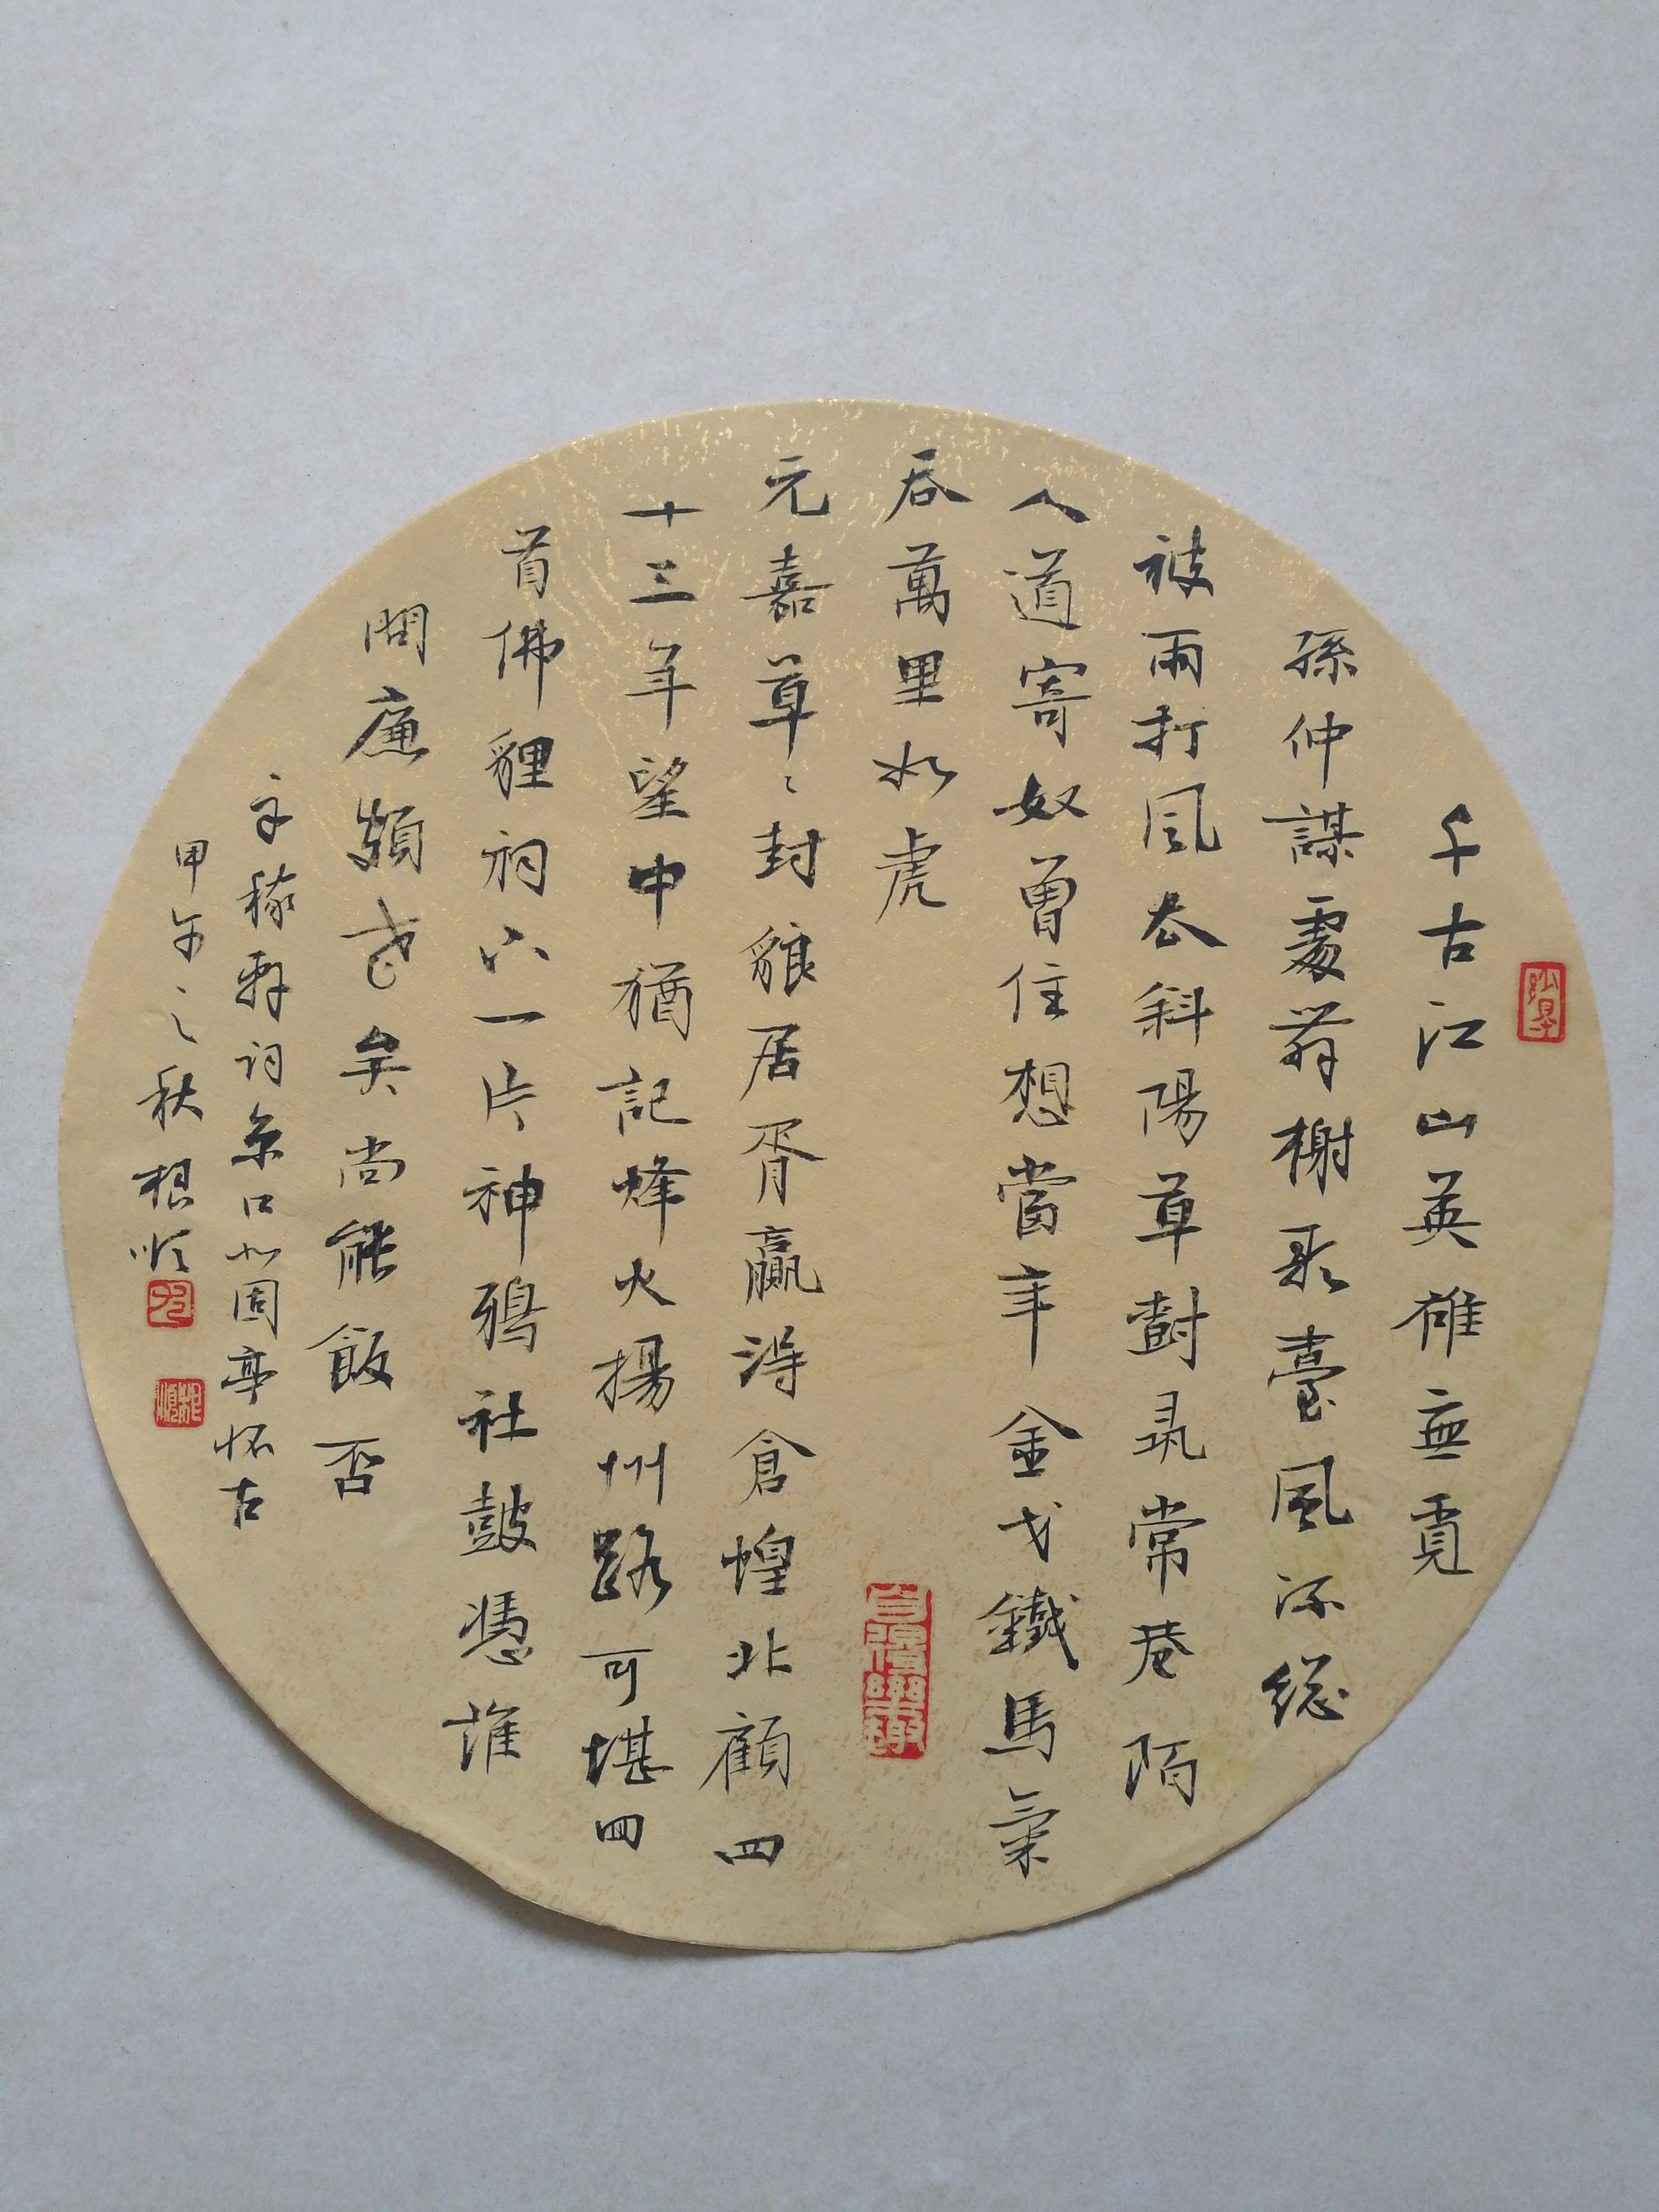 千古江山英雄無覓
孫仲謀處舞榭歌臺風流總
被雨打風去斜陽草樹尋常巷陌
人道寄奴曾住想當年金戈鐵馬氣
吞萬里如虎
元嘉草〻封貌居胥贏得倉惶北顧四
十三年望中猶記烽火揚州路可堪四
首佛貍祠下一片神鴉社鼓憑誰
問廉頗老矣尚能飯否
辛稼軒詞京口北固亭怀古
甲午之秋根順